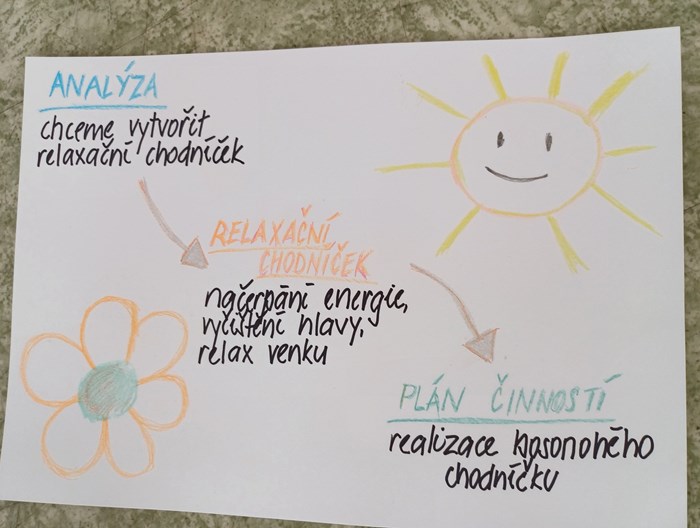 ANALÝZA
chceme vytvořit
relaxační chodníček
RELAXAČNÍ
CHODNÍČEK
načerpání energie,
vyčištění hlavy,
relax venku
PLÁN ČINNOSTÍ
realizace bosonohého
chodníčku